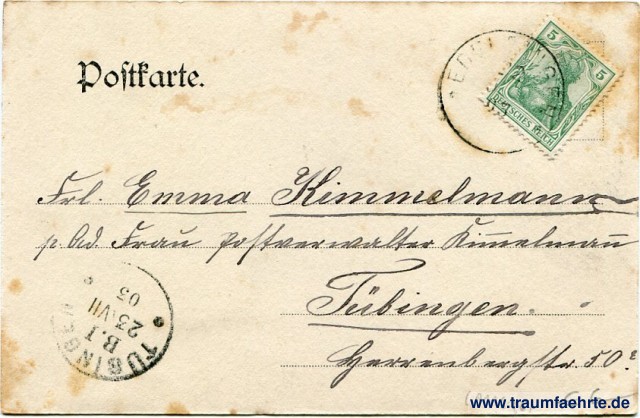 Postkarte.
5 5
DEUTSCHES REICH
Frl. Emma Himmelmann
p. Ad. Frau Postverwalter Kimelman
Tübingen.
Herrenbergstr. 50
TÜBINGEN
B.I
23 VII
05
www.traumfaehrte.de